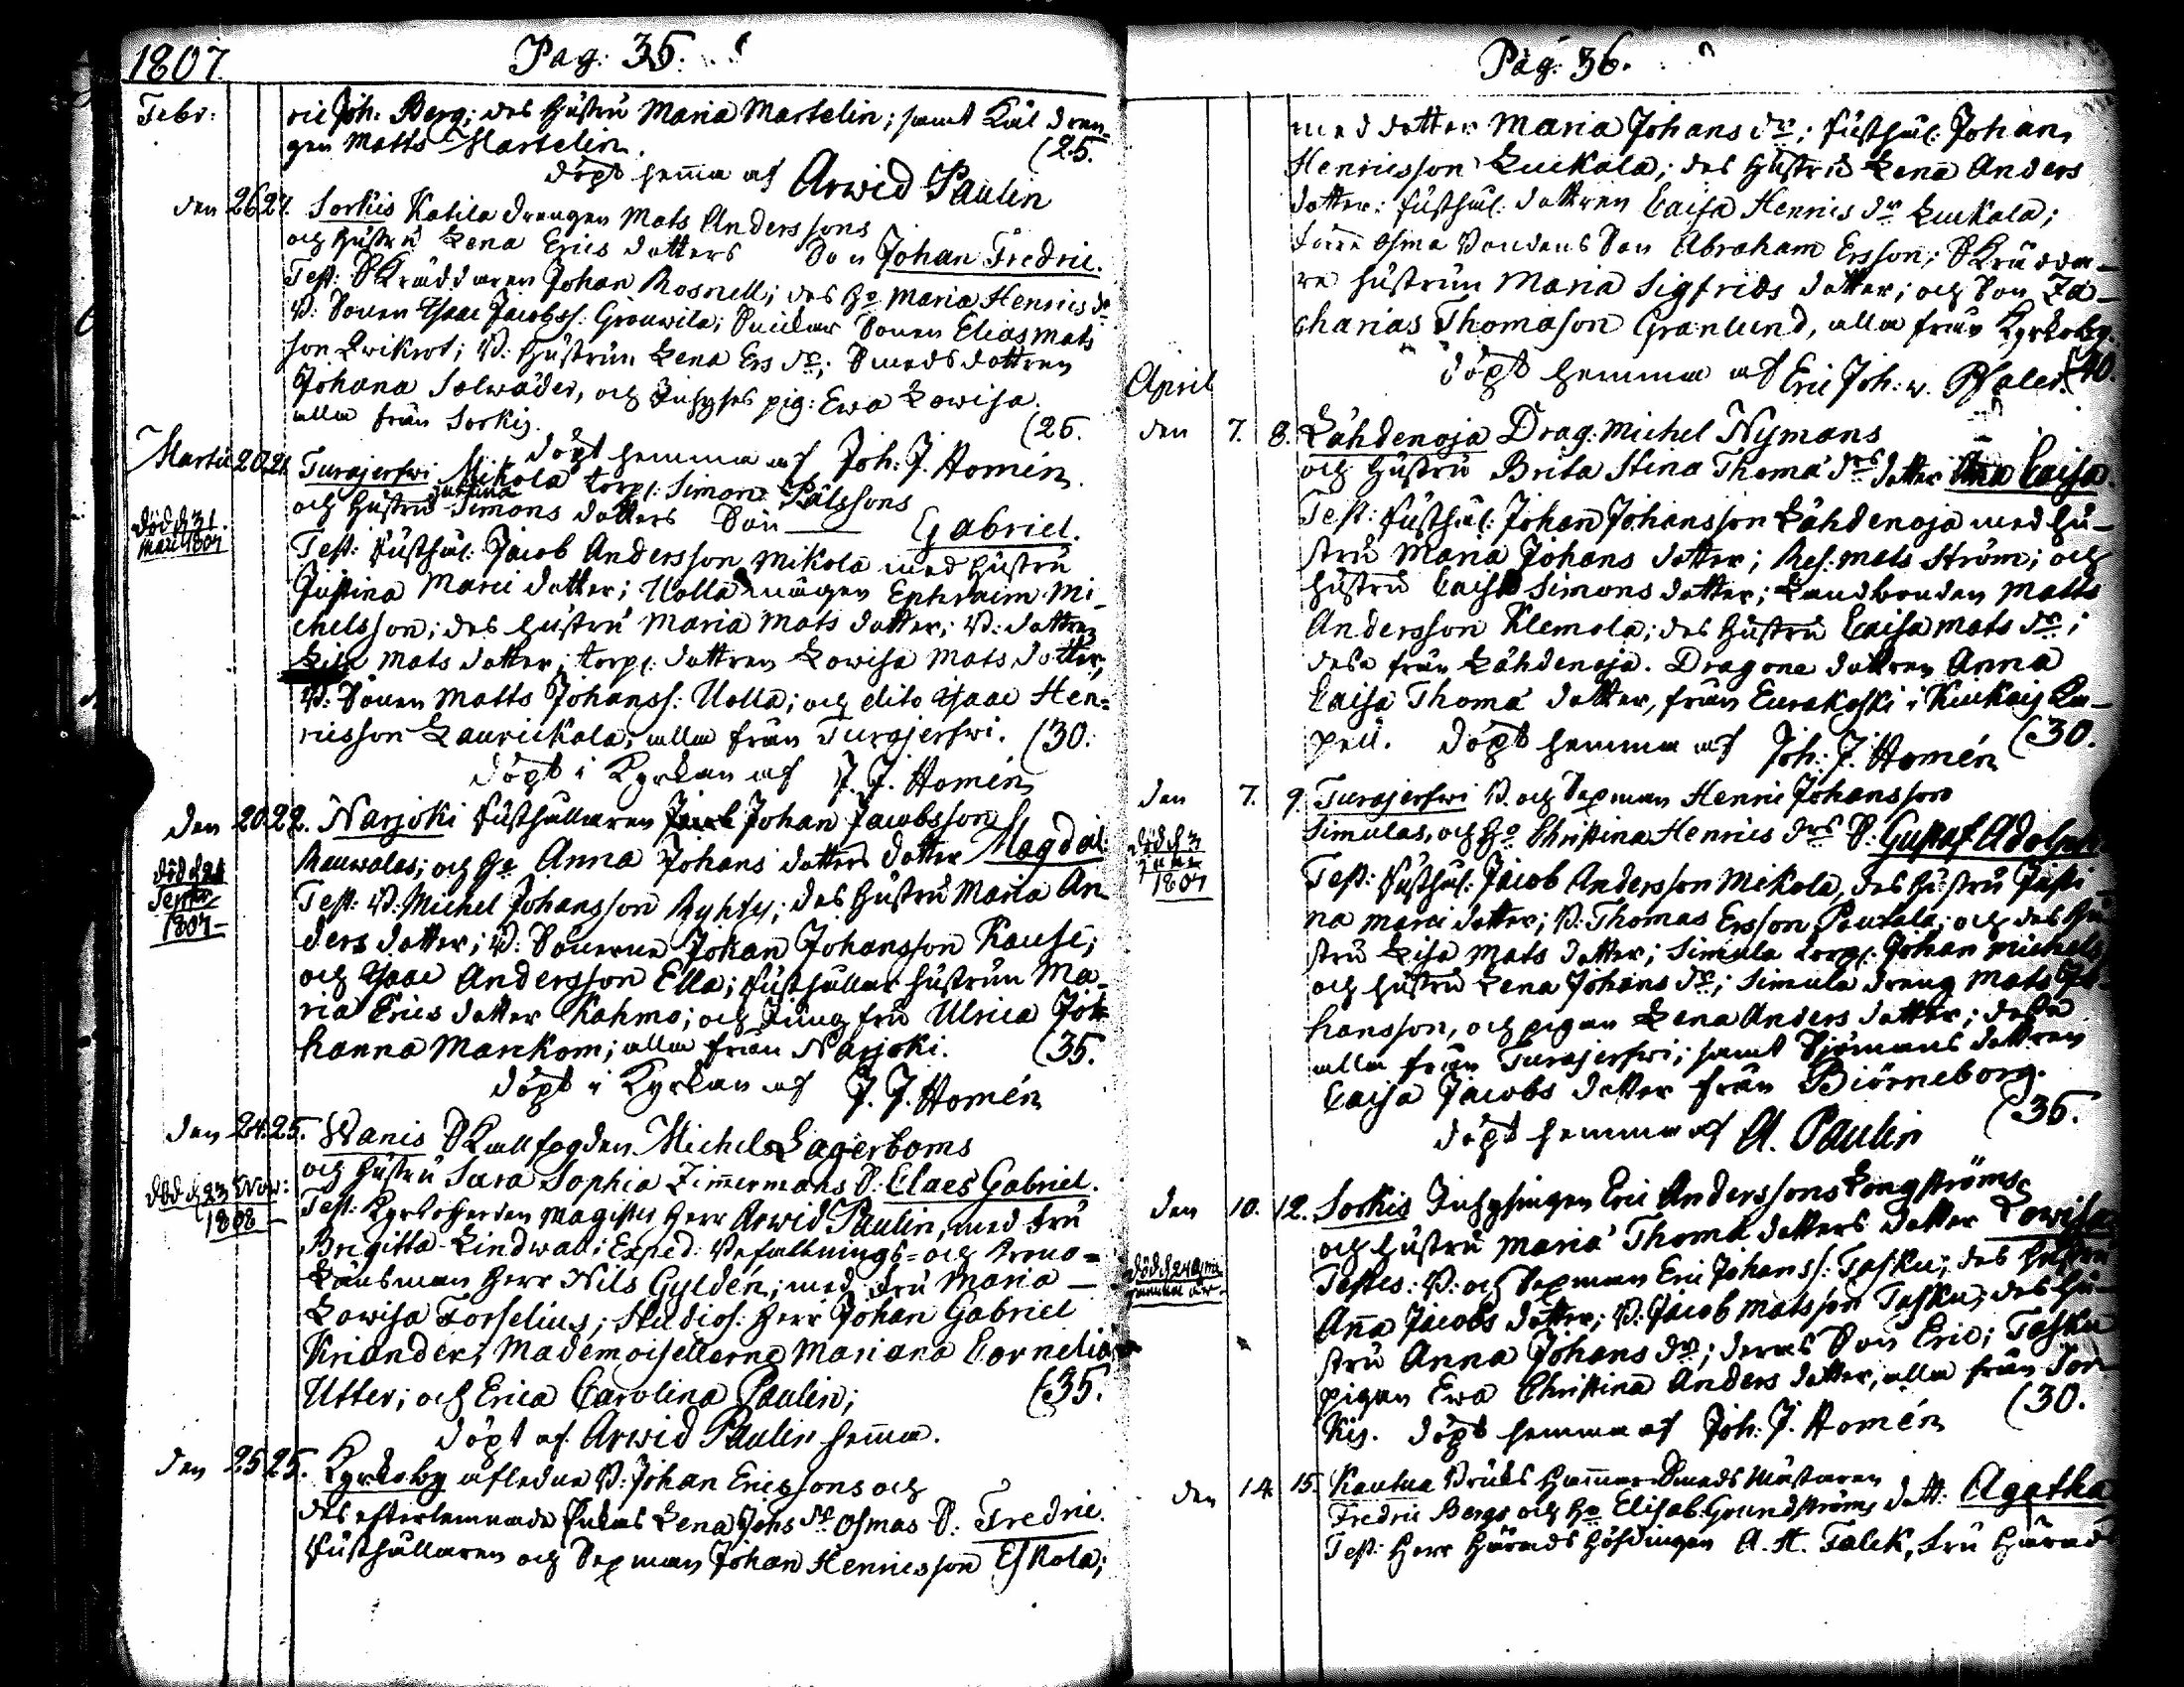 1807.
Pag: 35.
Febr:
ric Joh: Berg; des Hustru Maria Martelin; samt Kål dren-
gen Matts Martelin. (25.
döpt hema af Arwid Paulin
den 26 27. Sorkis Katila drengen Mats Anderssons
och Hustru Lena Erics dotters Son Johan Fredric.
Test: Skräddaren Johan Rosnell; des Ho Maria Henrics dr
B: Sonen Isaac Jacobss: Grouwila; Sonen Elias Mats
son Kwikrot; B: Hustrun Lena Ers dr; Smedsdottren
Johana Solwäder, och Inhyses pig: Ewa Lowisa.
alla från Sorkis. (25.
döpt hemma af Joh: J. Homén.
Martii 20 21. Turajerfwi Mikola torp: Simon Pålssons
och Hustru Justina Simons dotters Son Gabriel.
död d 31.
Marti 1807
Test: Rusthål: Jacob Andersson Mikola med Hustru
Justina Marci dotter; Uolla mågen Ephraim Mi-
chelsson; des Hustru Maria Mats dotter; B: dottren
Lisa Mats dotter; torp: dottren Lowisa Mats dotter;
B: Sonen Matts Johanss: Uolla; och dito Isaac Hen=
ricsson Laurickala, alla från Turajerfwi. (30.
döpt i Kyrkan af J. J. Homén
den 20 22. Narjoki Rusthållaren Johan Jacobsson
Rauwolas; och Ho Anna Johans dotters dotter Magdal:
död d 28
Septr
1807
Test: B: Michel Johansson Ryhty; des Hustru Maria An
ders dotter; B: Sönerne Johan Johansson Kause;
och Isaac Andersson Ella; Rusthållar Hustrun Ma-
ria Erics dotter Kahma; och Jungfru Ulrica Jo-
hanna Marckom; alla från Narjoki. (35.
döpt i Kyrkan af J. J. Homén
den 24. 25. Wanis Skallfogden Michel Lagerboms
och Hustru Sara Sophia Zimermans S: Claes Gabriel.
död d 23 Nov:
1808
Test: Kyrkoherden Magister Herr Arwid Paulin, med Fru
Brigitta Lindwall; Exped: Befallnings= och Krono=
Länsman Herr Nils Gyldén; med Fru Maria
Lowisa Forselius; Studios: Herr Johan Gabriel
Kriander; Mademoisellerna Mariana Cornelia
Utter; och Erica Carolina Paulin; (35.
döpt af Arwid Paulin hema.
den 25 25. Kyrkoby afledne B: Johan Ericssons och
des efterlemnade Enkas Lena Johs dr Osmas S: Fredric.
Rusthållaren och Sexman Johan Henricsson Eskola;
Pag: 36.
med dotter Maria Johans dr; Rusthål: Johan
Henricsson Luckala; des Hustru Lena Anders
dotter: Rusthål: dottren Caisa Henrics dr Luckala;
Osma Bondens Son Abraham Ersson; Skrädda-
re Hustrun Maria Sigfrids dotter; och Son Za-
charias Thomasson Granlund, alla från Kyrkoby.
döpt hemma af Eric Joh: v. Pfaler. (40.
April
den 7. 8. Lähdenoja Drag: Michel Nymans
och Hustru Brita Stina Thomæ drs dotter Ana Caisa.
Test: Rusthål: Johan Johansson Lähdenoja med Hu-
stru Maria Johans dotter; Res: Mats Ström; och
Hustru Caisa Simons dotter; Landbonden Matts
Andersson Klemola; des Hustru Caisa Mats dr;
desa från Lähdenoja. Dragone dottren Anna
Caisa Thomæ dotter, från Eurakoski i Kiukais Ca-
pell. döpt hemma af Joh: J. Homén (30.
den 7. 9. Turajerfwi B. och Sexman Henric Johansson
Simulas, och Ho Christina Henrics drs S: Gustaf Adolph.
död d 3
June
1807
Test: Rusthål: Jacob Andersson Mikola, des Hustru Justi-
na Marci dotter; B: Thomas Ersson Pautala; och des Hu
stru Lisa Mats dotter; Simula torp: Johan Michels
och Hustru Lena Johans dr; Simula dreng Mats Jo-
hansson, och pigan Lena Anders dotter; desa
alla från Turajerfwi; samt Sjömans dottren
Caisa Jacobs dotter från Biörneborg. (35.
döpt hemma af A. Paulin
den 10. 12. Sorkis Inhysingen Eric Anderssons Longströms
och Hustru Maria Thomæ dotters dotter Lowisa
död d 24
Testes: B: och Sexman Eric Johanss: Tasku; des Hustru
Ana Jacobs dotter; B: Jacob Matsson Tasku, des Hu-
stru Anna Johans dr; deras Son Eric; Tasku
pigan Ewa Christina Anders dotter, alla från Sor-
kis. döpt hemma af Joh: J. Homén (30.
den 14. 15. Kautua Bruks Hammar Smeds Mästaren
Fredric Bergs och Ho Elisab: Grundströms dott: Agatha
Test: Herr Härads Höfdingen A. H. Falck, Fru Härad